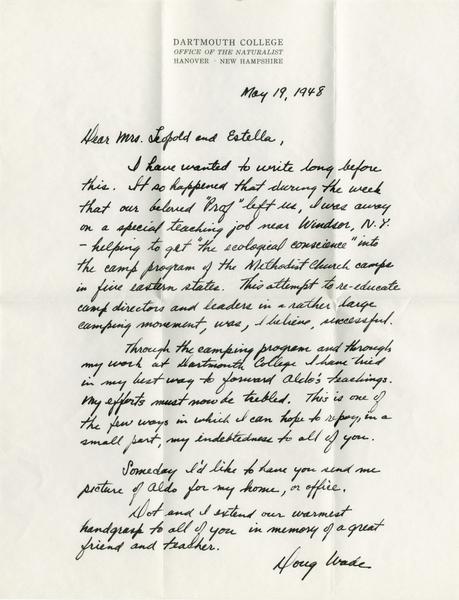 DARTMOUTH COLLEGE
OFFICE OF THE NATURALIST
HANOVER · NEW HAMPSHIRE
May 19, 1948
Dear Mrs. Leopold and Estella,
I have wanted to write long before
this. It so happened that during the week
that our beloved "Prof" left us, I was away
on a special teaching job near Windsor, N.Y.
- helping to get "the ecological conscience" into
the camp program of the Methodist Church camps
in five eastern states. This attempt to re-educate
camp directors and leaders in a rather large
camping movement, was, I believe, successful.
Through the camping program and through
my work at Dartmouth College I have tried
in my best way to forward Aldo's teachings.
My efforts must now be trebled. This is one of
the few ways in which I can hope to repay, in a
small part, my indebtedness to all of you.
Someday I'd like to have you send me
picture of Aldo for my home, or office.
Dot and I extend our warmest
handgrasp to all of you in memory of a great
friend and teacher.
Doug Wade